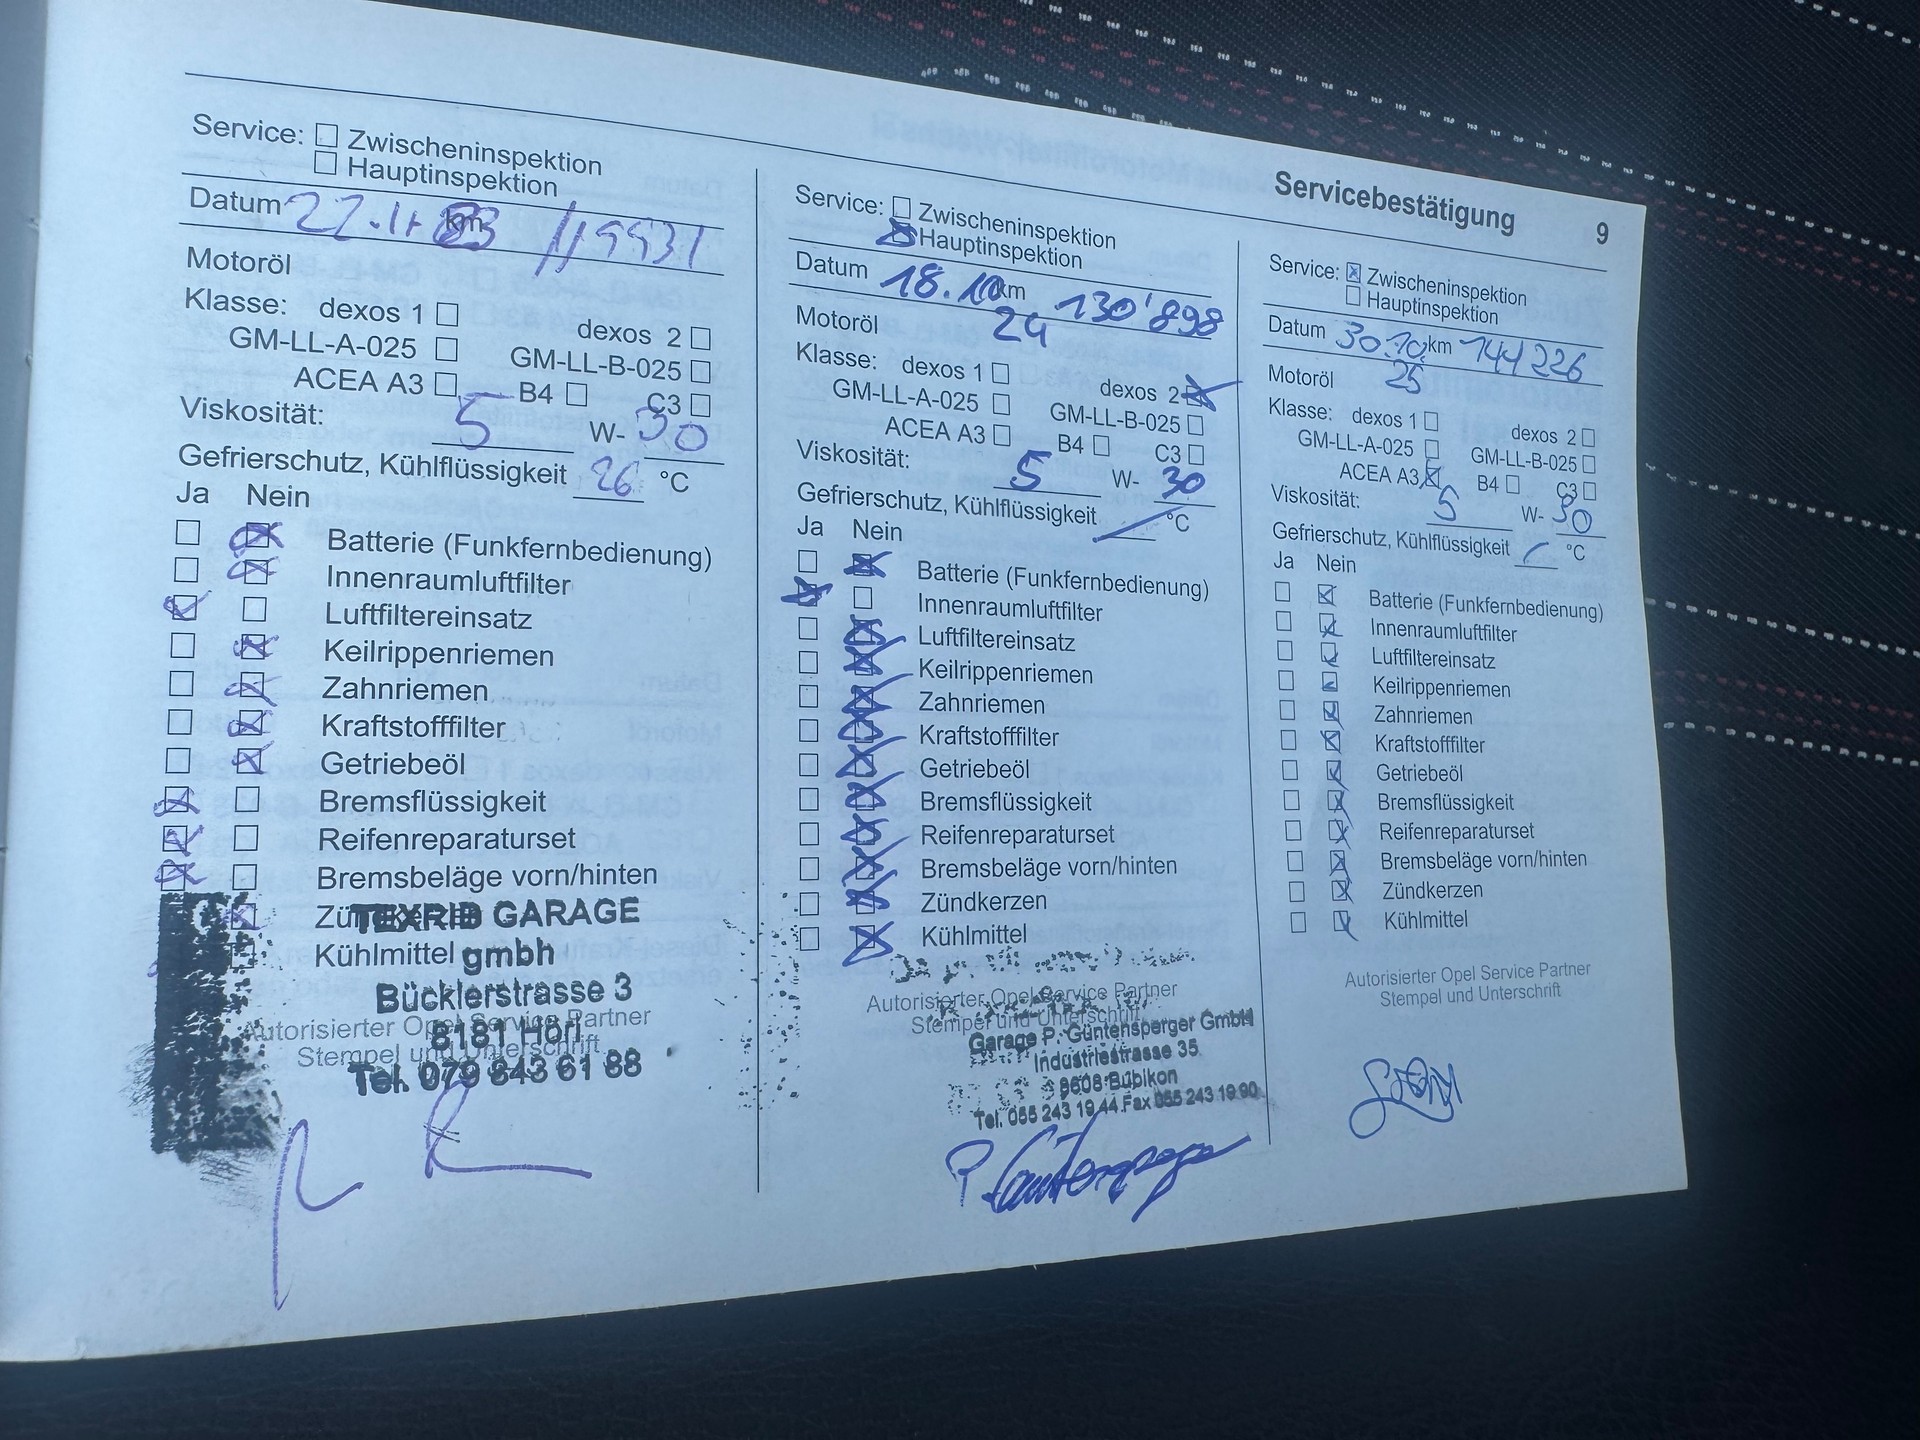 Servicebestätigung 9
Service: Zwischeninspektion
Hauptinspektion
Datum 22.11 km 119931
Motoröl
Klasse: dexos 1 dexos 2
GM-LL-A-025 GM-LL-B-025
ACEA A3 B4 C3
Viskosität: 5 W- 30
Gefrierschutz, Kühlflüssigkeit 26 °C
Ja Nein
Batterie (Funkfernbedienung)
Innenraumluftfilter
Luftfiltereinsatz
Keilrippenriemen
Zahnriemen
Kraftstofffilter
Getriebeöl
Bremsflüssigkeit
Reifenreparaturset
Bremsbeläge vorn/hinten
TEXRID GARAGE
Kühlmittel gmbh
Bücklerstrasse 3
Autorisierter Opel Service Partner
8181 Höri
Stempel und Unterschrift
Tel. 079 843 61 88
Service: Zwischeninspektion
Hauptinspektion
Datum 18.10 km 130'898
24
Motoröl
Klasse: dexos 1 dexos 2
GM-LL-A-025 GM-LL-B-025
ACEA A3 B4 C3
Viskosität: 5 W- 30
Gefrierschutz, Kühlflüssigkeit °C
Ja Nein
Batterie (Funkfernbedienung)
Innenraumluftfilter
Luftfiltereinsatz
Keilrippenriemen
Zahnriemen
Kraftstofffilter
Getriebeöl
Bremsflüssigkeit
Reifenreparaturset
Bremsbeläge vorn/hinten
Zündkerzen
Kühlmittel
Autorisierter Opel Service Partner
Stempel und Unterschrift
Garage P. Güntensperger GmbH
Industriestrasse 35
8608 Bubikon
Tel. 055 243 19 44 Fax 055 243 19 90
P. Güntensperger
Service: Zwischeninspektion
Hauptinspektion
Datum 30.10. km 144226
25
Motoröl
Klasse: dexos 1 dexos 2
GM-LL-A-025 GM-LL-B-025
ACEA A3 B4 C3
Viskosität: 5 W- 30
Gefrierschutz, Kühlflüssigkeit °C
Ja Nein
Batterie (Funkfernbedienung)
Innenraumluftfilter
Luftfiltereinsatz
Keilrippenriemen
Zahnriemen
Kraftstofffilter
Getriebeöl
Bremsflüssigkeit
Reifenreparaturset
Bremsbeläge vorn/hinten
Zündkerzen
Kühlmittel
Autorisierter Opel Service Partner
Stempel und Unterschrift